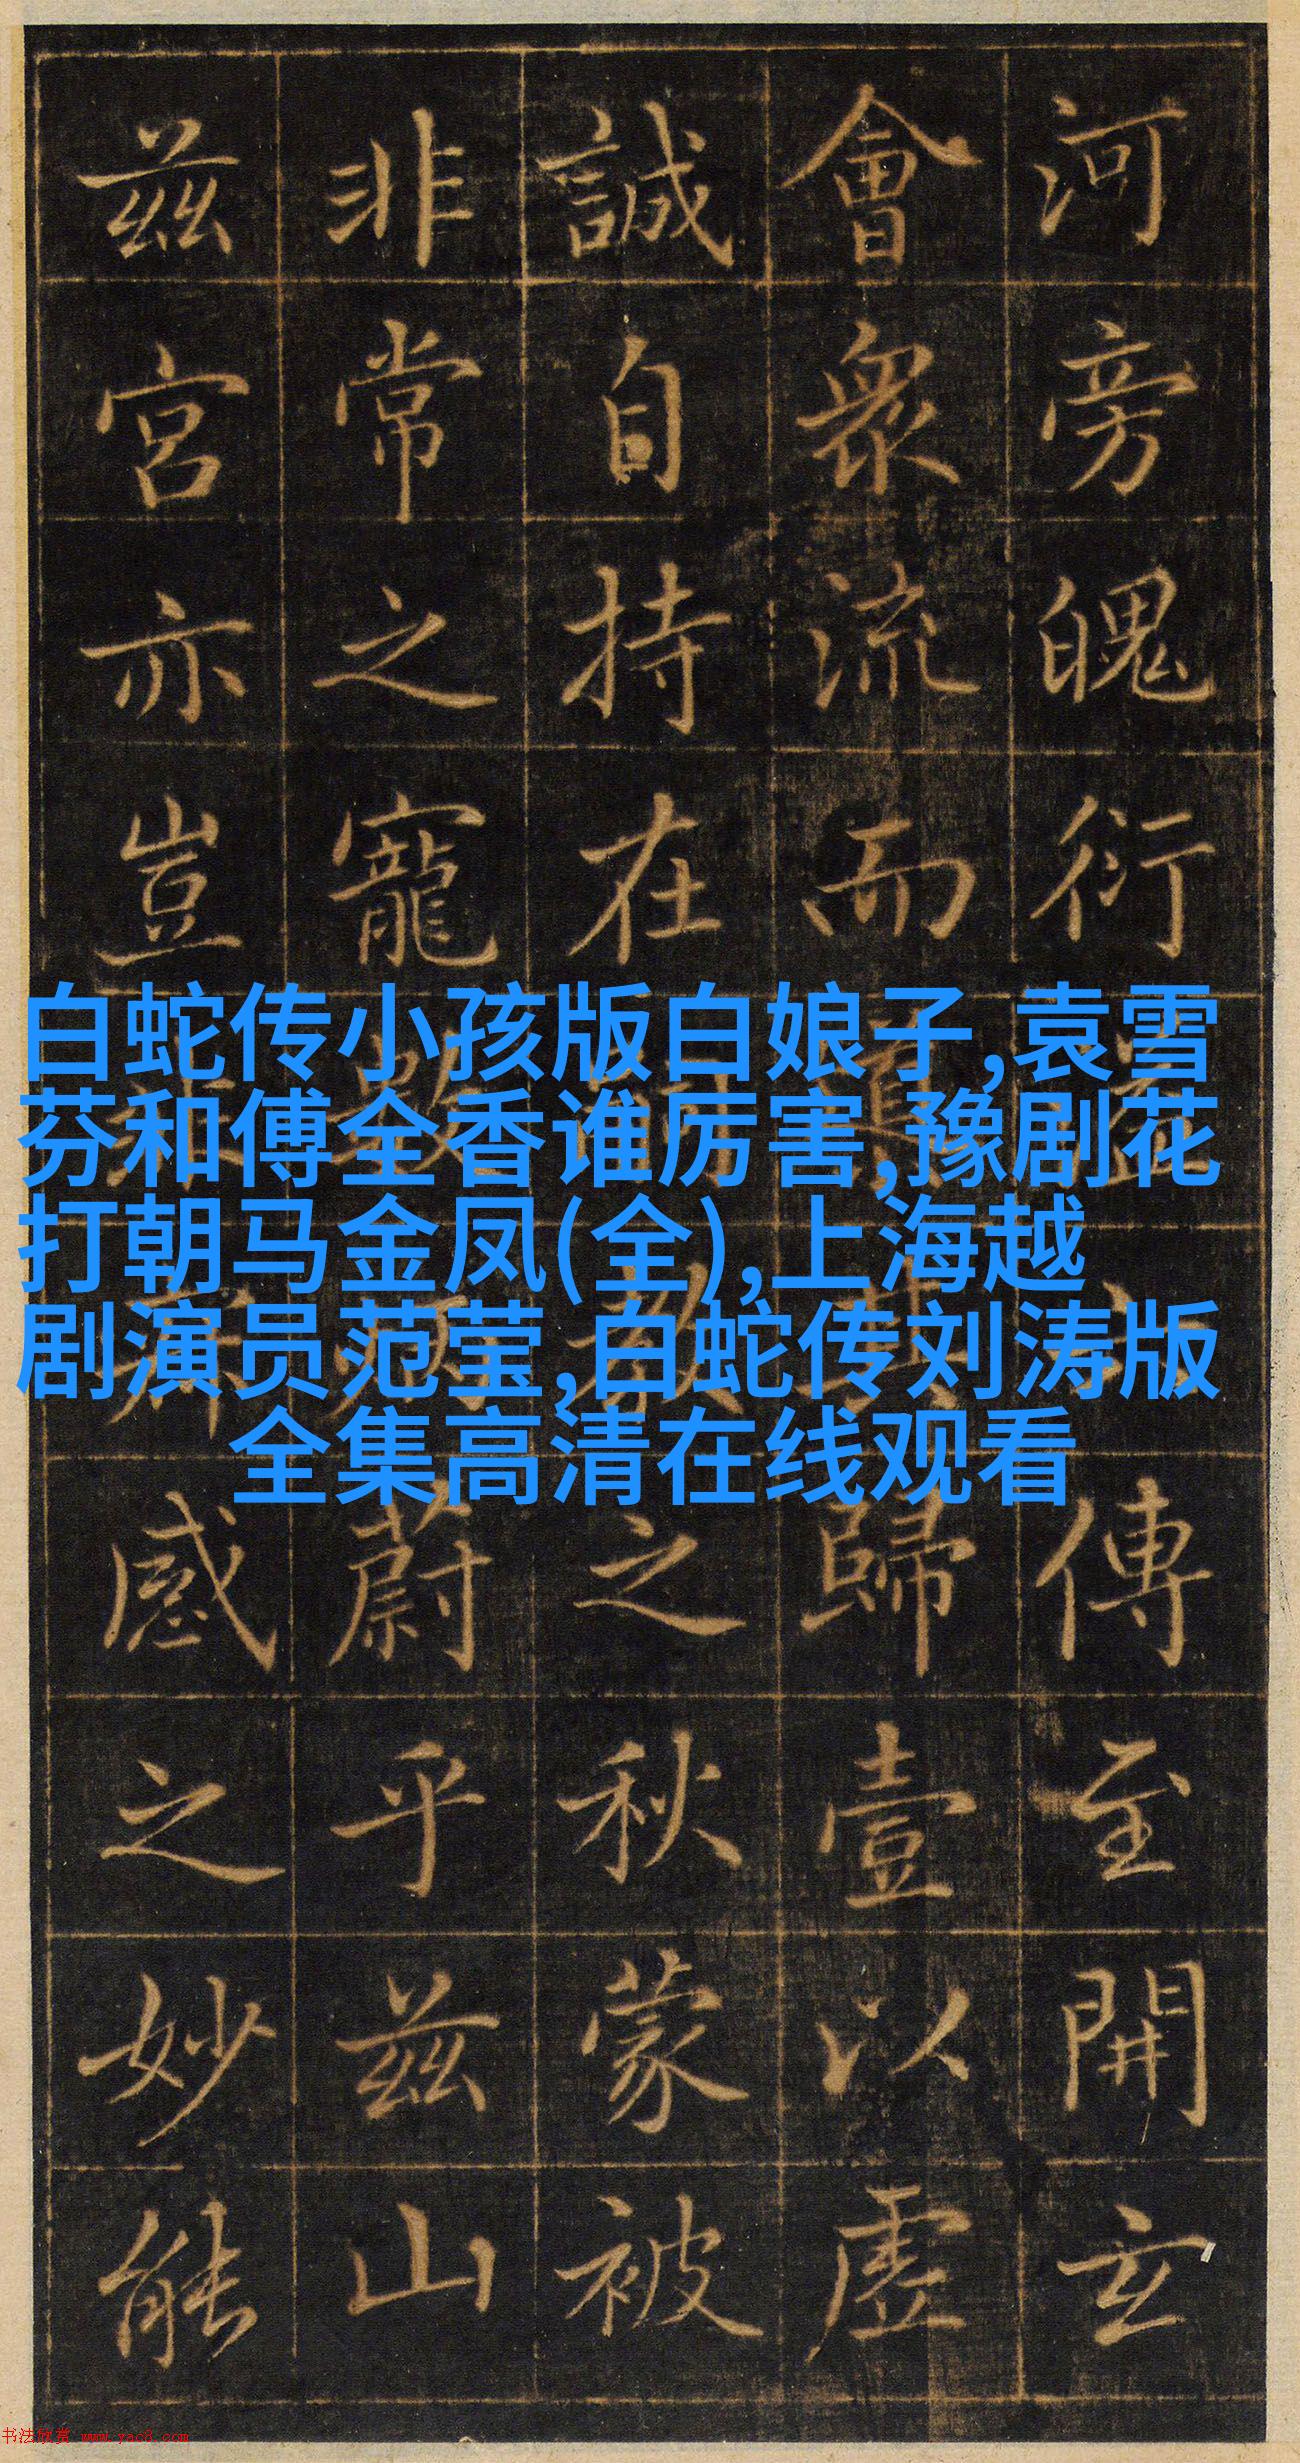 河旁魄衍傳至開玄
會眾流而歸壹以虛
誠自持在之秋蒙被
非常之寵蔚乎兹山
兹宮亦豈感之妙能
白蛇传小孩版白娘子,袁雪
芬和傅全香谁厉害,豫剧花
打朝马金凤(全),上海越
剧演员范莹,白蛇传刘涛版
全集高清在线观看
书法欣赏 www.yac8.com